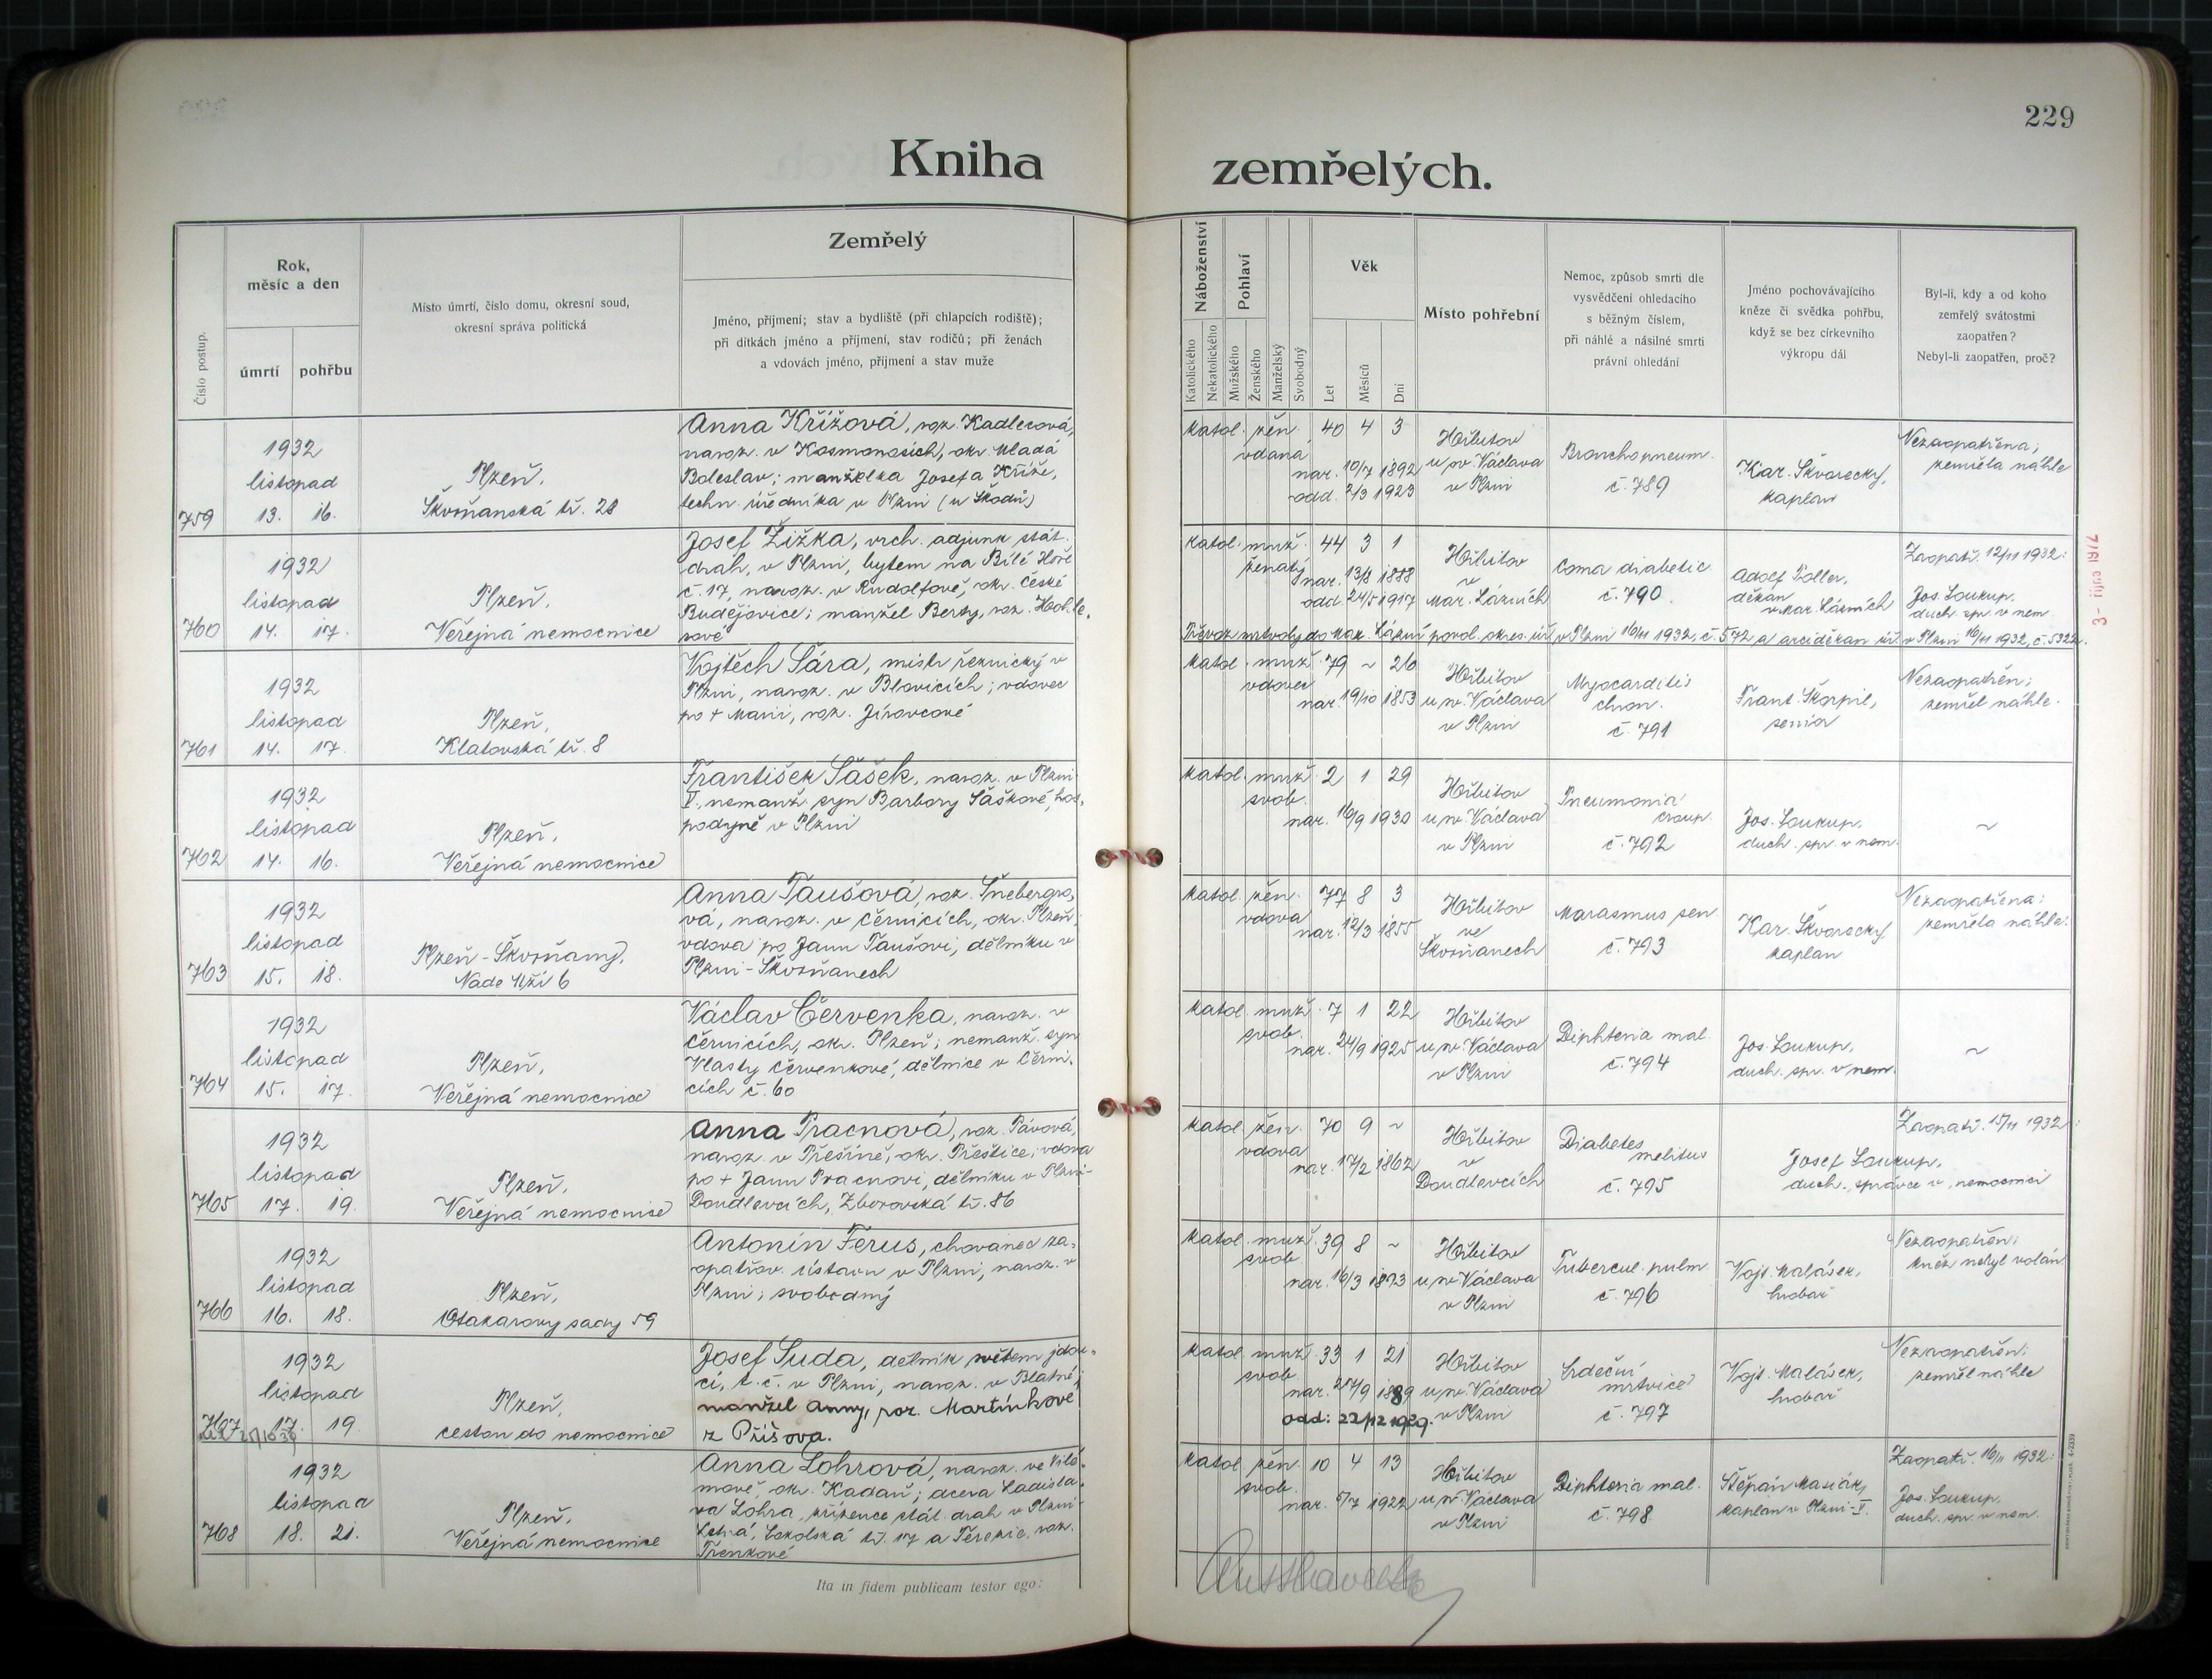 229
Kniha zemřelých.
Číslo postup.
Rok,
měsíc a den
úmrtí
pohřbu
Místo úmrtí, číslo domu, okresní soud,
okresní správa politická
Zemřelý
Jméno, příjmení; stav a bydliště (při chlapcích rodiště);
při dítkách jméno a příjmení, stav rodičů; při ženách
a vdovách jméno, příjmení a stav muže
Náboženství
Katolického
Nekatolického
Pohlaví
Mužského
Ženského
Manželský
Svobodný
Věk
Let
Měsíců
Dní
Místo pohřební
Nemoc, způsob smrti dle
vysvědčení ohledacího
s běžným číslem,
při náhlé a násilné smrti
právní ohledání
Jméno pochovávajícího
kněze či svědka pohřbu,
když se bez církevního
výkropu dál
Byl-li, kdy a od koho
zemřelý svátostmi
zaopatřen?
Nebyl-li zaopatřen, proč?
759
1932
listopad
13. 16.
Plzeň,
Škvrňanská tř. 28
Anna Křížová, roz. Kadlecová,
naroz. v Kosmonosích, okr. Mladá
Boleslav; manželka Josefa Kříže,
techn. úředníka v Plzni (u Škodů)
katol. žen. 40 4 3
vdana
nar. 10/7 1892
odd. 2/3 1923
Hřbitov
u sv. Václava
v Plzni
Bronchopneum.
č. 789
Kar. Škvorecký,
kaplan
Nezaopatřena;
zemřela náhle
760
1932
listopad
14. 17.
Plzeň,
Veřejná nemocnice
Josef Žižka, vrch. adjunk stát.
drah, v Plzni, bytem na Bílé Hoře
č. 17, naroz. v Rudolfově, okr. České
Budějovice; manžel Berty, roz.
katol. muž. 44 3 1
ženatý
nar. 13/8 1888
odd. 24/5 1917
Hřbitov
v
Mar. Lázních
Coma diabetic.
č. 790.
Adolf
děkan
v Mar. Lázních
Zaopatř. 12/11 1932:
Jos. Soukup,
duch. spr. v nem.
Převoz mrtvoly do Mar. Lázní povol. okres. úř. v Plzni 16/11 1932, č. 572 a arciděkan. úř. v Plzni 16/11 1932, č. 5322.
3- říj 1917
761
1932
listopad
14. 17.
Plzeň,
Klatovská tř. 8
Vojtěch Sára, mistr řeznický v
Plzni, naroz. v Blovicích; vdovec
po + Marii, roz. Jírovcové
katol. muž. 79 ~ 26
vdovec
nar. 19/10 1853
Hřbitov
u sv. Václava
v Plzni
Myocarditis
chron.
č. 791
Frant. Škorpil,
senior
Nezaopatřen;
zemřel náhle.
762
1932
listopad
14. 16.
Plzeň,
Veřejná nemocnice
František Sášek, naroz. v Plzni
V., nemanž. syn Barbory Sáškové, hos-
podyně v Plzni
katol. muž. 2 1 29
svob.
nar. 16/9 1930
Hřbitov
u sv. Václava
v Plzni
Pneumonia
croup.
č. 792
Jos. Soukup,
duch. spr. v nem.
~
763
1932
listopad
15. 18.
Plzeň-Škvrňany,
Nade Mží 6
Anna Taušová, roz. Šnebergro-
vá, naroz. v Černicích, okr. Plzeň;
vdova po Janu Taušovi, dělníku v
Plzni-Škvrňanech
katol. žen. 77 8 3
vdova
nar. 12/3 1855
Hřbitov
ve
Škvrňanech
Marasmus sen.
č. 793
Kar. Škvorecký
kaplan
Nezaopatřena;
zemřela náhle.
764
1932
listopad
15. 17.
Plzeň,
Veřejná nemocnice
Václav Červenka, naroz. v
Černicích, okr. Plzeň; nemanž. syn
Vlasty Červenkové, dělnice v Černi-
cích č. 60
katol. muž. 7 1 22
svob.
nar. 24/9 1925
Hřbitov
u sv. Václava
v Plzni
Diphteria mal.
č. 794
Jos. Soukup,
duch. spr. v nem.
~
765
1932
listopad
17. 19.
Plzeň,
Veřejná nemocnice
Anna Pracnová, roz. Pávová,
naroz. v Přešíně, okr. Přeštice; vdova
po + Janu Pracnovi, dělníku v Plzni-
Doudlevcích, Zborovská tř. 86
katol. žen. 70 9 ~
vdova
nar. 17/2 1862
Hřbitov
v
Doudlevcích
Diabetes
melitus
č. 795
Josef Soukup,
duch. správce v nemocnici
Zaopatř. 15/11 1932:
766
1932
listopad
16. 18.
Plzeň,
Otakarovy sady 59
Antonín Ferus, chovanec za-
opatřov. ústavu v Plzni, naroz. v
Plzni; svobodný
katol. muž. 39 8 ~
svob.
nar. 16/3 1893
Hřbitov
u sv. Václava
v Plzni
Tubercul. pulm.
č. 796
Vojt. Malásek,
hrobař
Nezaopatřen;
kněz nebyl volán
767
1932
listopad
17. 19.
Plzeň,
cestou do nemocnice
Josef Suda, dělník světem jdou-
cí, t. č. v Plzni, naroz. v Blatné;
manžel Anny, roz. Martínkové
z Příšova.
katol. muž. 33 1 21
svob.
nar. 1889
odd: 22/12 1929.
Hřbitov
u sv. Václava
v Plzni
Srdeční
mrtvice
č. 797
Vojt. Malásek,
hrobař
Nezaopatřen;
zemřel náhle
768
1932
listopad
18. 21.
Plzeň,
Veřejná nemocnice
Anna Lohrová, naroz. ve Vilé-
mově, okr. Kadaň; dcera Ladisla-
va Lohra, zřízence stát. drah v Plzni-
Letná, Sokolská tř. 17 a Terezie, roz.
Trenkové
katol. žen. 10 4 13
svob.
nar. 5/7 1922
Hřbitov
u sv. Václava
v Plzni
Diphteria mal.
č. 798
Štěpán Masiár,
kaplan v Plzni-I.
Zaopatř. 16/11 1932:
Jos. Soukup,
duch. spr. v nem.
Ita in fidem publicam testor ego: